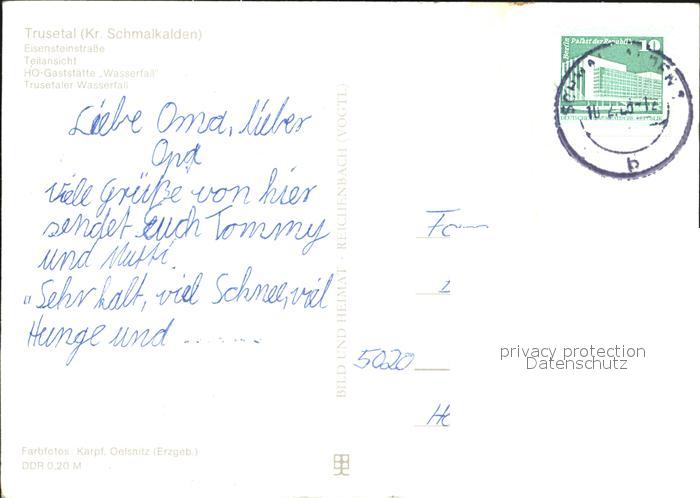 Trusetal (Kr. Schmalkalden)
Eisensteinstraße
Teilansicht
HO-Gaststätte „Wasserfall"
Trusetaler Wasserfall
Berlin Palast der Republik 10
DEUTSCHE DEMOKRATISCHE REPUBLIK
b
Liebe Oma, lieber
Opa
viele Grüße von hier
sendet euch Tommy
und Mutti.
"Sehr kalt, viel Schnee, viel
Hunge und .......
BILD UND HEIMAT · REICHENBACH (VOGTL)
Fa
1
5020
privacy protection
Datenschutz
Farbfotos: Karpf, Oelsnitz (Erzgeb.)
DDR 0,20 M